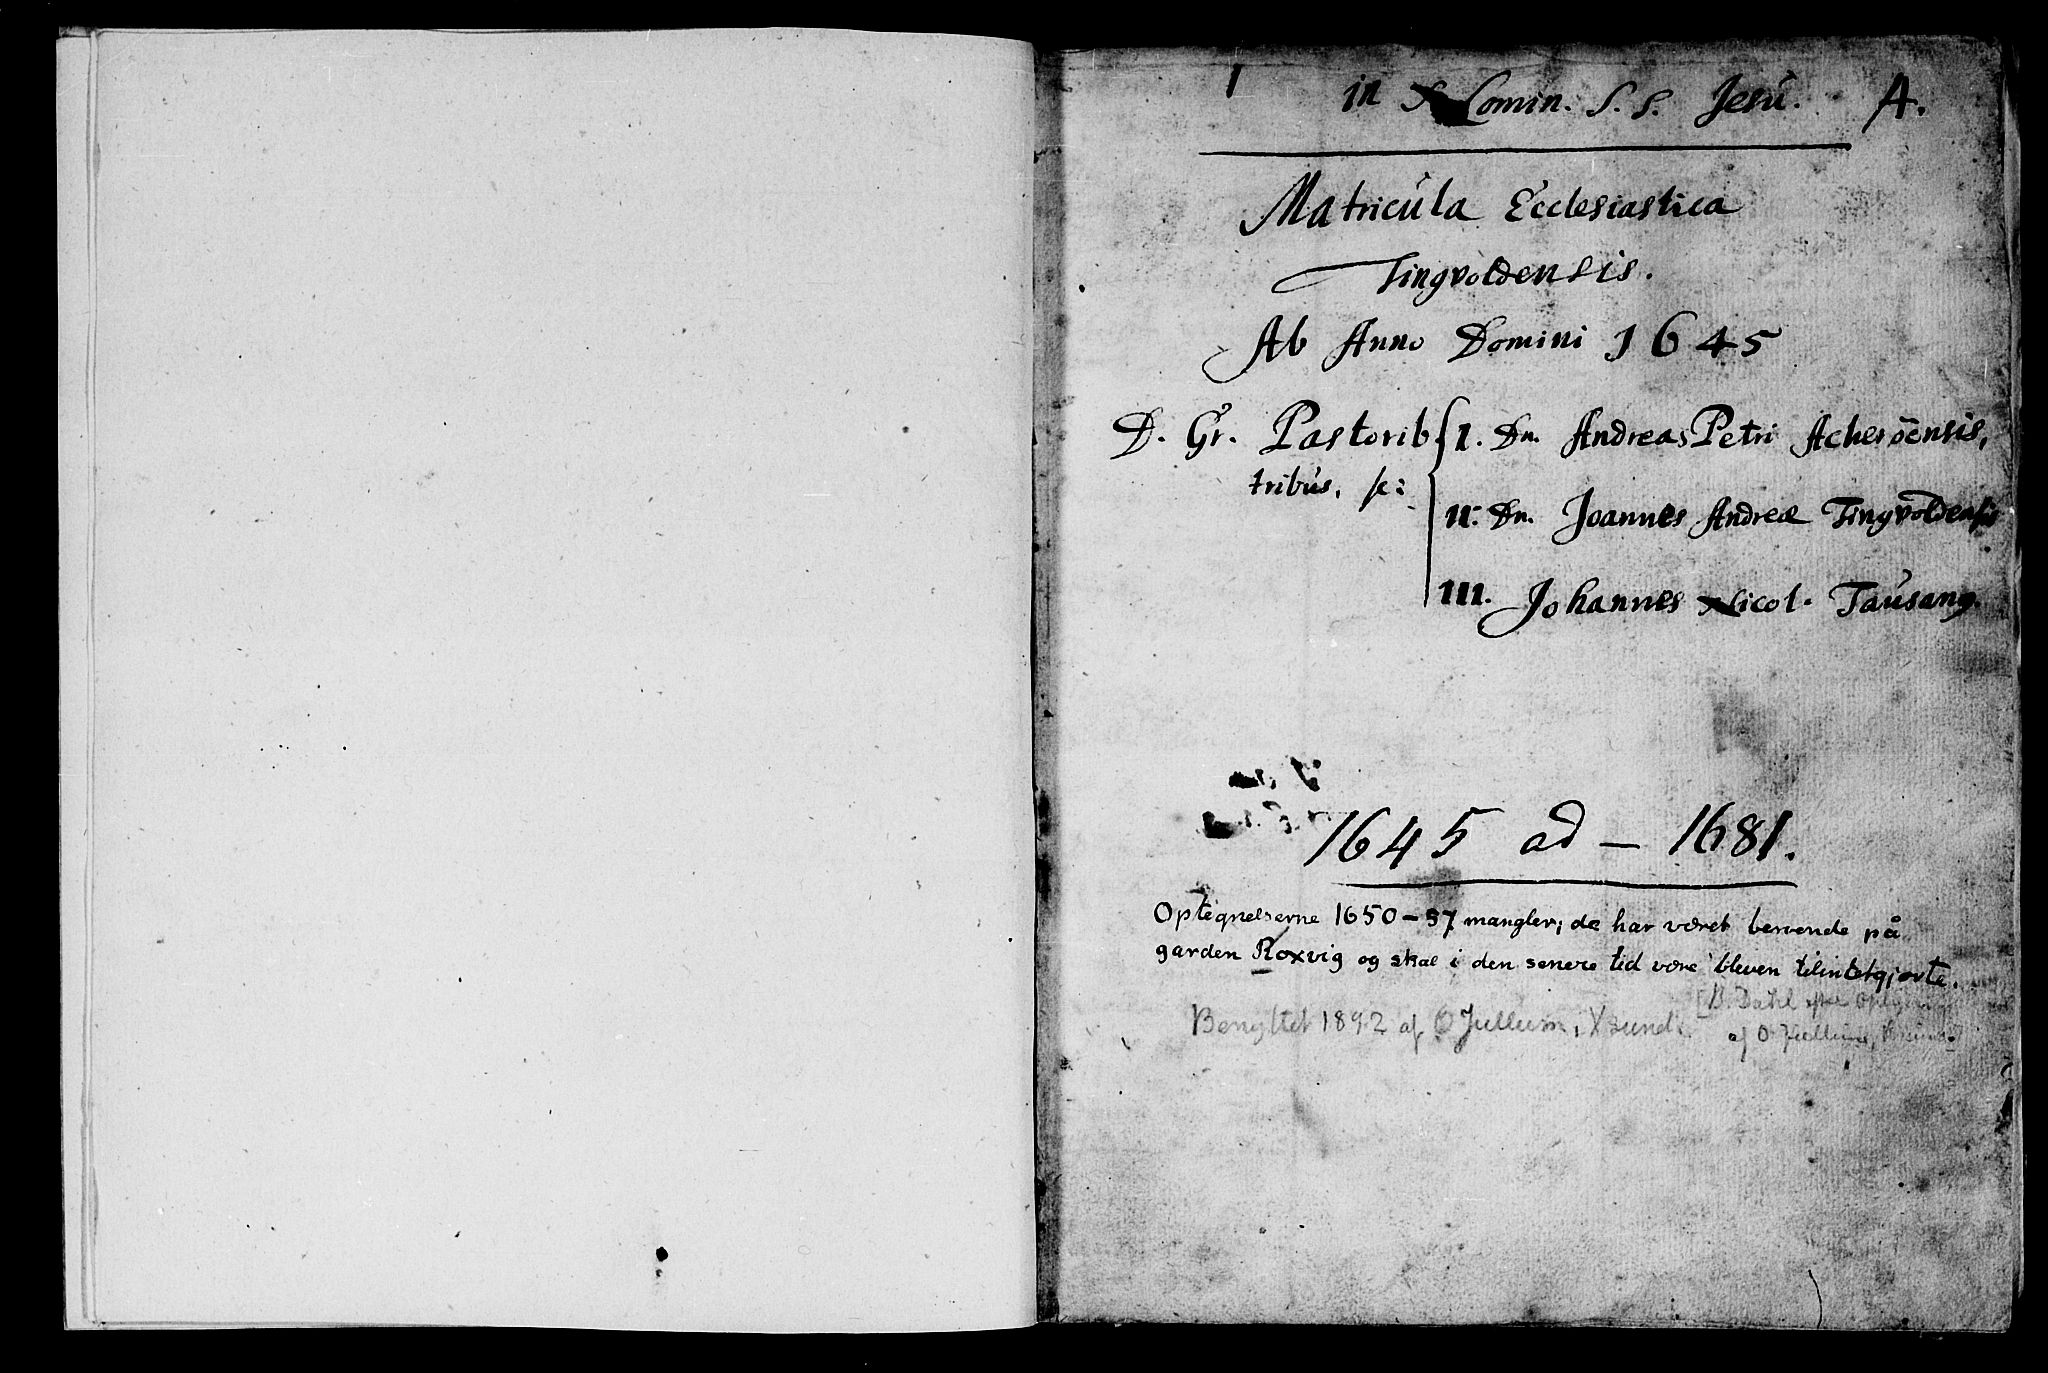 1 in Nomin. S. S. Jesu. A.
Matricula Ecclesiastica
Tingvoldensis.
Ab Anno Domini 1645
D. Gr. Pastorib { I. Dn. Andreas Petri Acheröensis,
tribus, sc:
II. Dn. Joannes Andreæ Tingvoldensis
III. Johannes Nicol. Tausang.
1645 ad — 1681.
Optegnelserne 1650-57 mangler; de har været beroende på
garden Roxvig og skal i den senere tid være bleven tilintetgjorte.
[B. Dahl efter
Benyttet 1892 af O Jullum, Xsund.
af O Jullum,